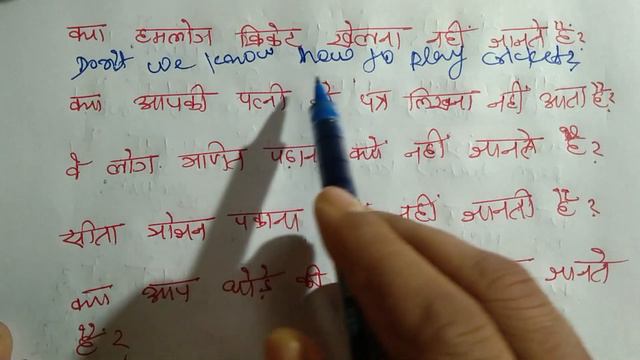 क्या हमलोग क्रिकेट खेलना नहीं जानते हैं?
Don't we know how to play cricket?
क्या आपकी पत्नी पत्र लिखना नहीं आता है?
वे लोग गणित पढ़ाना क्यों नहीं जानते हैं?
सीता भोजन पकाना नहीं जानती है?
क्या आप घोड़े की जानते
हैं?